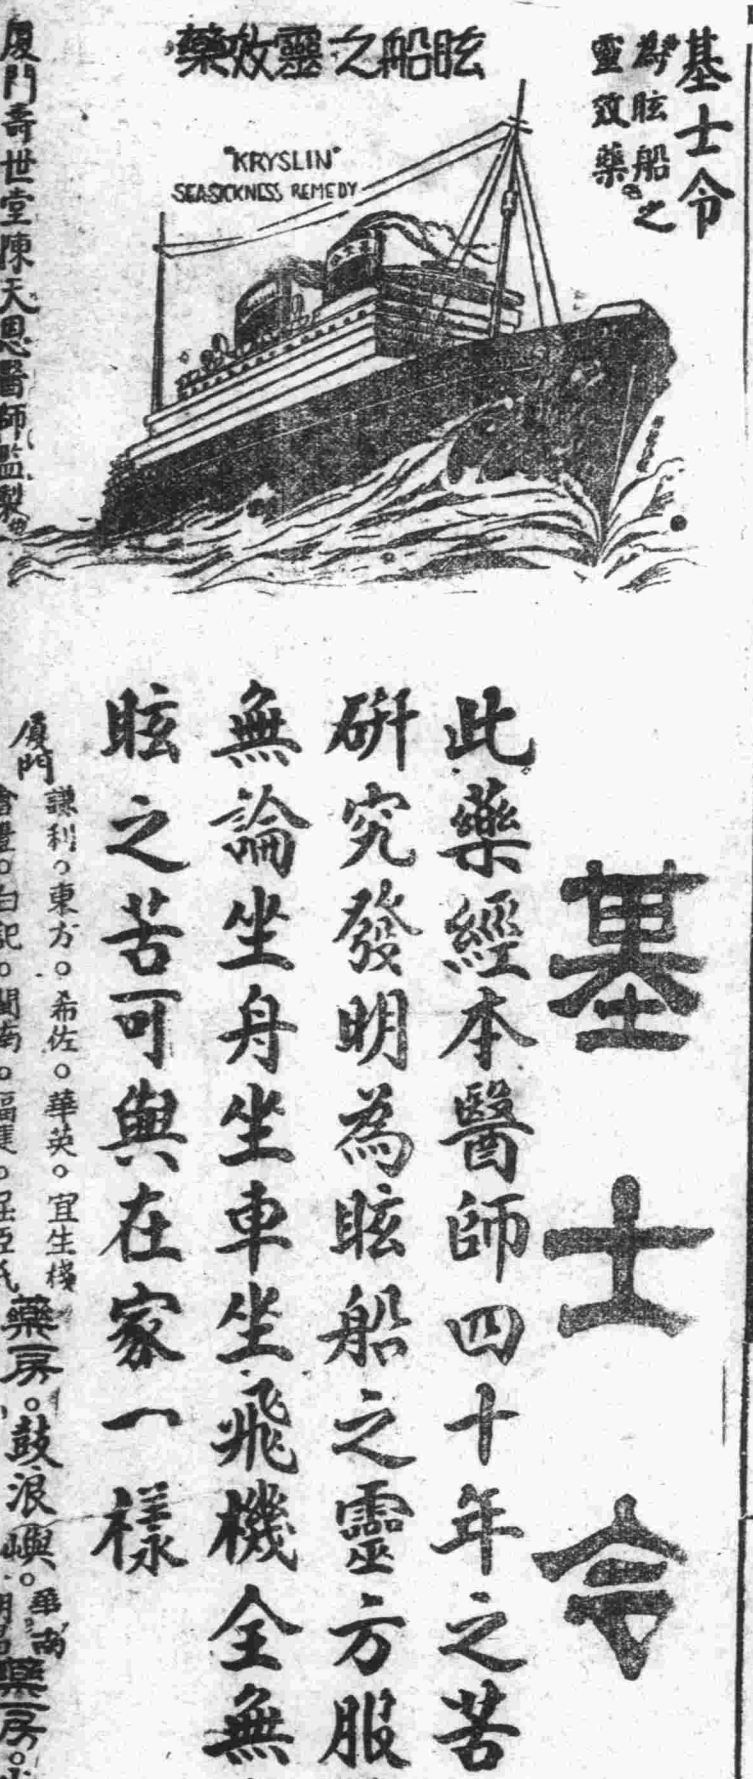 基士令
為眩船之
靈效藥。
眩船之靈效藥
"KRYSLIN"
SEA-SICKNESS REMEDY
廈門壽世堂陳天恩醫師監製
基士令
此藥經本醫師四十年之苦
研究發明為眩船之靈方服
無論坐舟坐車坐飛機全無
眩之苦可與在家一樣
廈門
謙利。東方。希佐。華英。宜生棧
白記。閩南。
藥房。鼓浪嶼。華南
藥房。